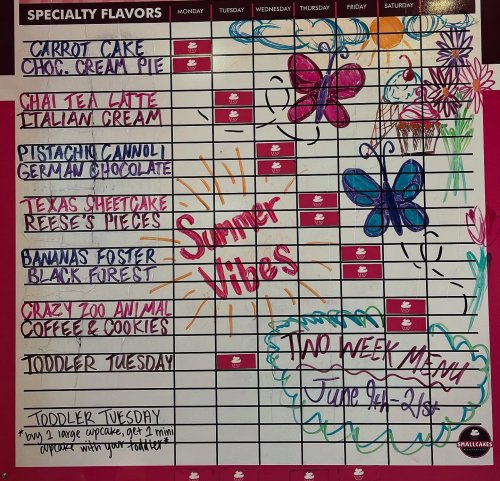 SPECIALTY FLAVORS MONDAY TUESDAY WEDNESDAY THURSDAY FRIDAY SATURDAY
CARROT CAKE
CHOC. CREAM PIE
CHAI TEA LATTE
ITALIAN CREAM
PISTACHIO CANNOLI
GERMAN CHOCOLATE
TEXAS SHEETCAKE
REESE'S PIECES
BANANAS FOSTER
BLACK FOREST
CRAZY ZOO ANIMAL
COFFEE & COOKIES
TODDLER TUESDAY
Summer
Vibes
TWO WEEK MENU
June 9th-21st
TODDLER TUESDAY
*buy 1 large cupcake, get 1 mini
cupcake with your toddler*
SMALLCAKES